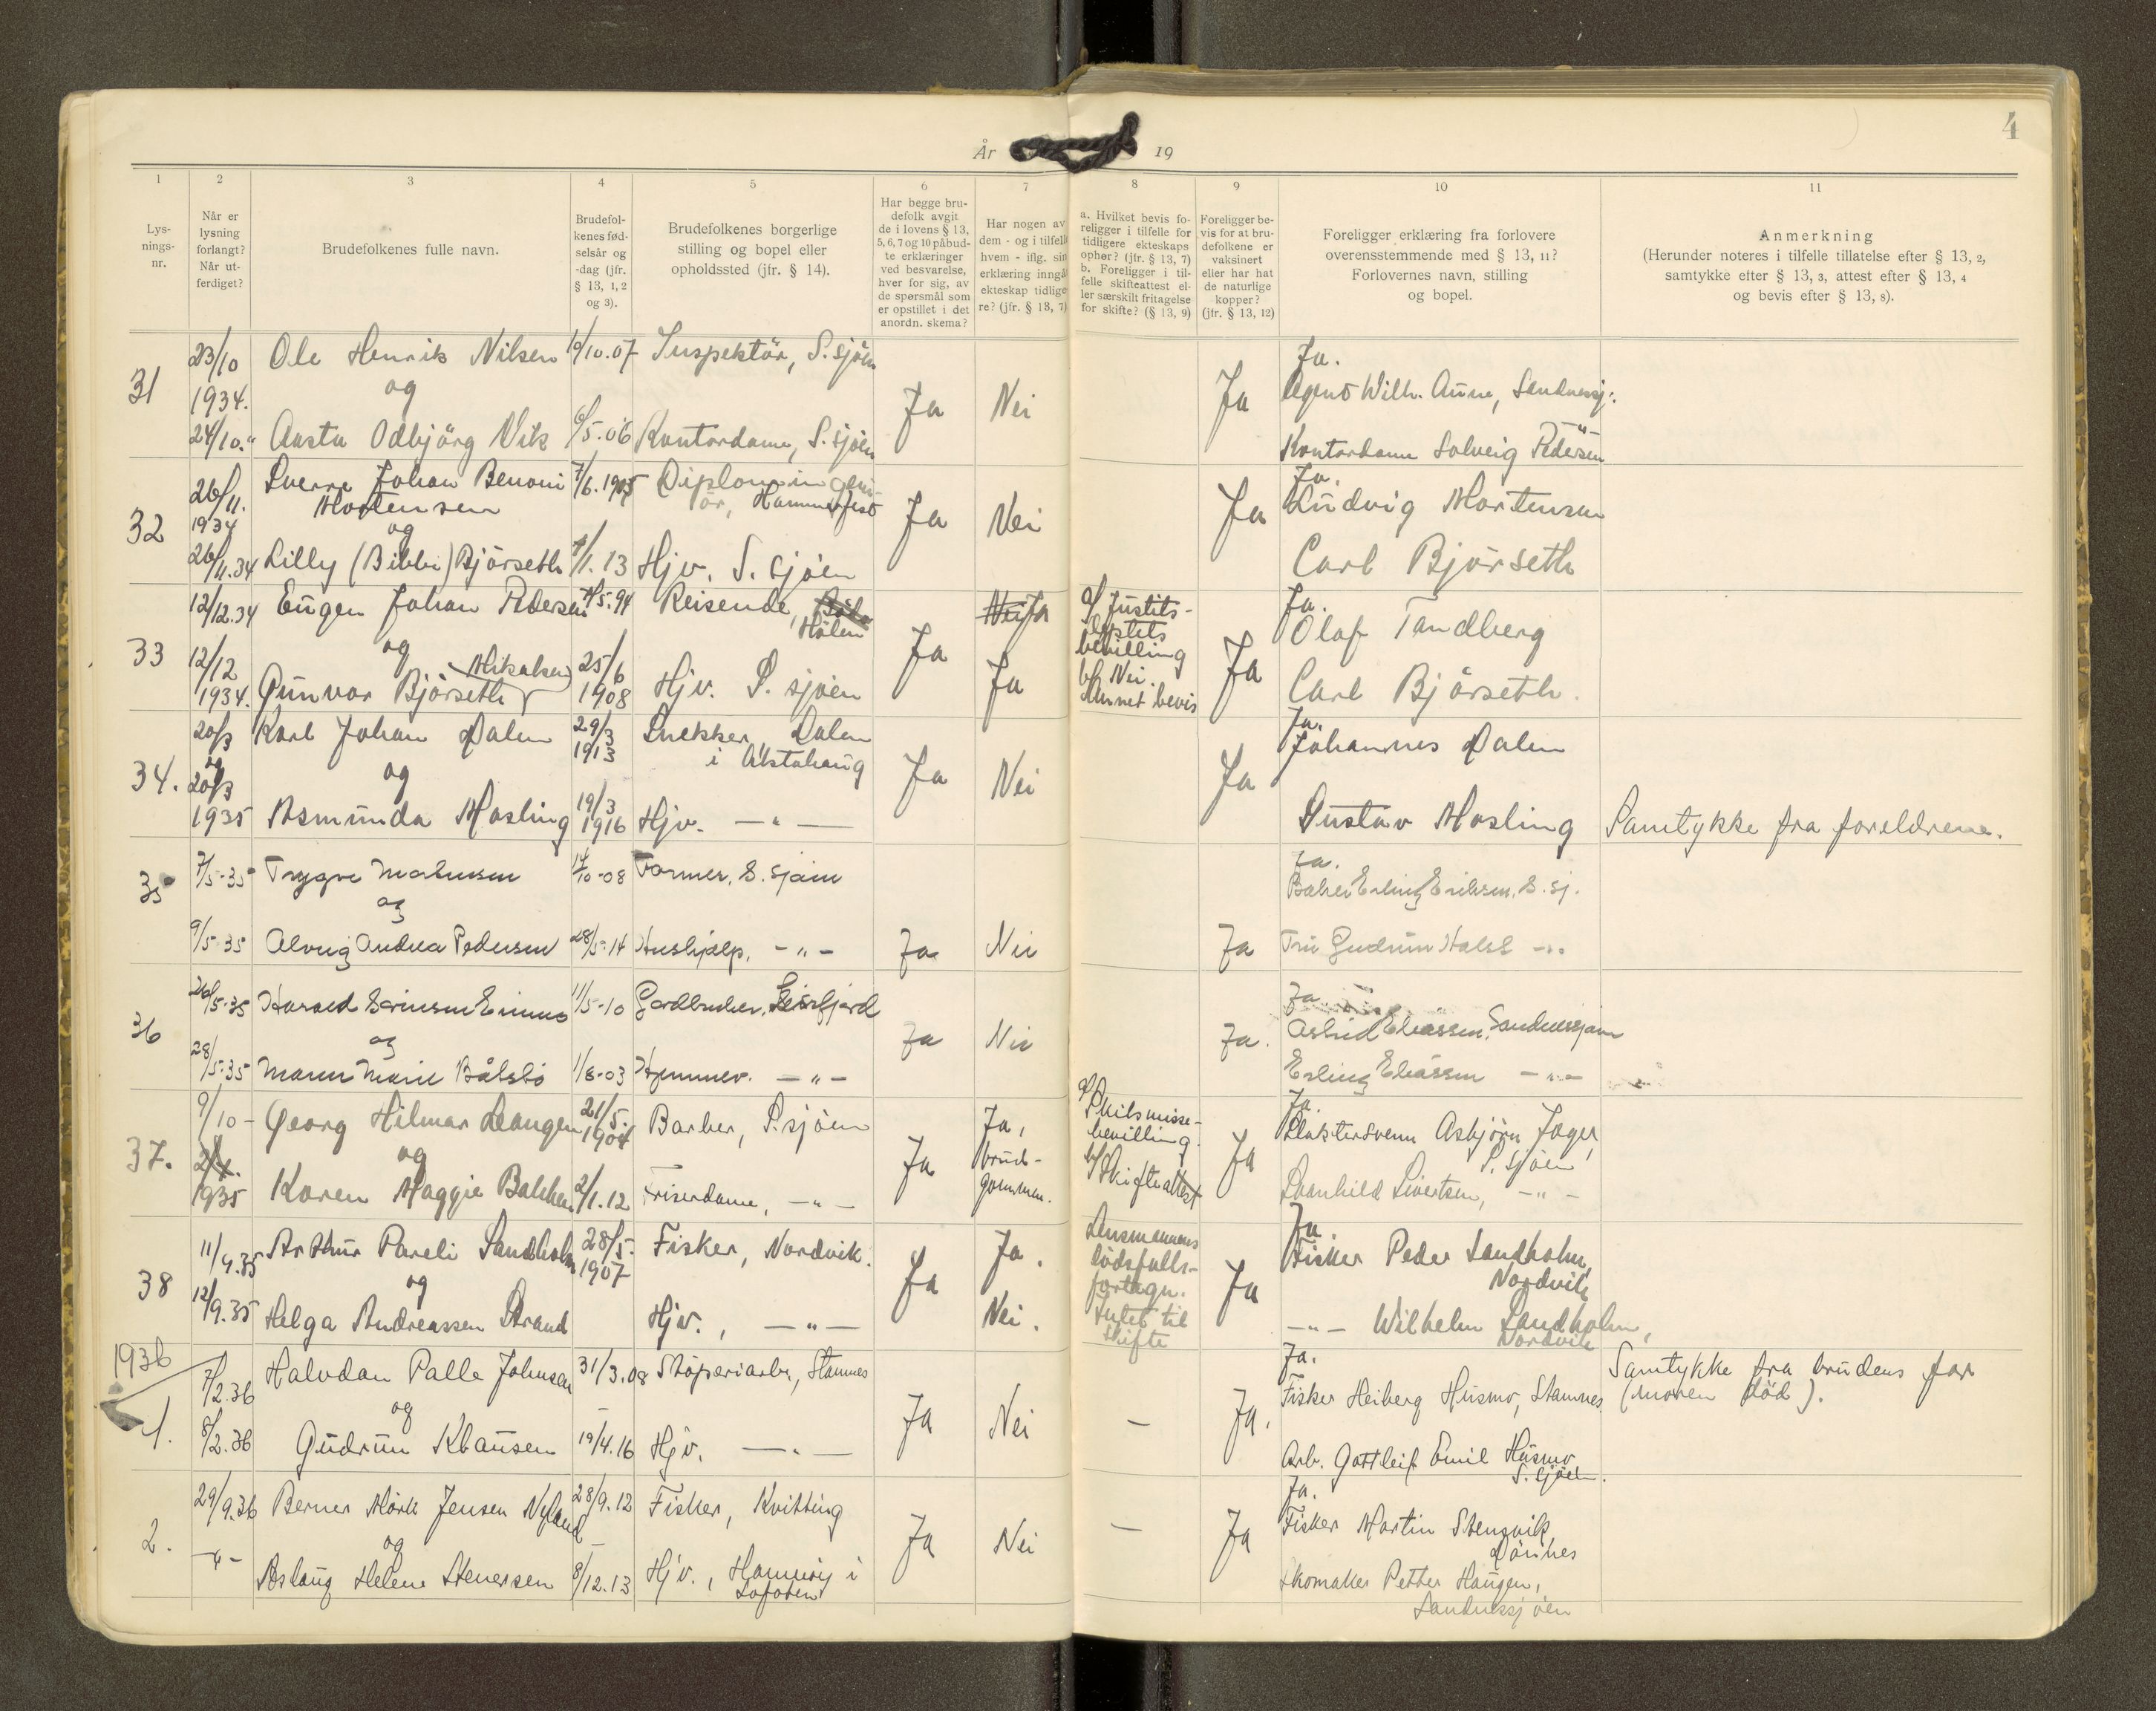 4
År 19
1 2 3 4 5 6 7 8 9 10 11
Lys-
nings-
nr.
Når er
lysning
forlangt?
Når ut-
ferdiget?
Brudefolkenes fulle navn.
Brudefol-
kenes fød-
selsår og
-dag (jfr.
§ 13, 1, 2
og 3).
Brudefolkenes borgerlige
stilling og bopel eller
opholdssted (jfr. § 14).
Har begge bru-
defolk avgit
de i lovens § 13,
5, 6, 7 og 10 påbud-
te erklæringer
ved besvarelse,
hver for sig, av
de spørsmål som
er opstillet i det
anordn. skema?
Har nogen av
dem - og i tilfell
hvem - iflg. sin
erklæring inngå
ekteskap tidlige
re? (jfr. § 13, 7)
a. Hvilket bevis fo-
religger i tilfelle for
tidligere ekteskaps
ophør? (jfr. § 13, 7)
b. Foreligger i til-
felle skifteattest el-
ler særskilt fritagelse
for skifte? (§ 13, 9)
Foreligger be-
vis for at bru-
defolkene er
vaksinert
eller har hat
de naturlige
kopper?
(jfr. § 13, 12)
Foreligger erklæring fra forlovere
overensstemmende med § 13, 11?
Forlovernes navn, stilling
og bopel.
Anmerkning
(Herunder noteres i tilfelle tillatelse efter § 13, 2,
samtykke efter § 13, 3, attest efter § 13, 4
og bevis efter § 13, 8).
31
23/10
1934.
24/10. "
Ole Henrik Nilsen
og
Aasta Odbjörg Vik
10.07
6/5.06
Inspektör, S.sjöen
Kontordame, S.sjöen
Ja
Nei
Ja
Ja.
Agent Wilh. Aune, Sandnessj.
Kontordame Solveig Pedersen
32
26/11.
1934
26/11.34
Sverre Johan Benoni
Mortensen
og
Lilly (Bibbi) Björseth
7/6.1905
1.13
Diplomingeni-
ör, Hammerfest
Hjv. S. sjöen
Ja
Nei
Ja
Ja.
Ludvig Mortensen
Carl Björseth
33
12/12.34
12/12
1934.
Eugen Johan Pedersen
og
Mikalsen
Gunvor Björseth
5.94
25/6
1908
Reisende,
Hölen
Hjv. S. sjöen
Ja
Nei Ja
Ja
a/ Justits-
bevilling
b/ Nei.
Annet bevis
Ja
Ja.
Olaf Tandberg
Carl Björseth.
34.
20/3
og
20/3
1935
Karl Johan Dalen
og
Asmunda Mosling
29/3
1913
19/3
1916
Snekker, Dalen
i Alstahaug
Hjv. — " —
Ja
Nei
Ja
Ja.
Johannes Dalen
Gustav Mosling
Samtykke fra foreldrene.
35
7/5-35
9/5-35
Trygve
og
Andrea Pedersen
10-08
28/5-14
Farmer, S.sjöen
Hushjelp, - " -
Ja
Nei
Ja
Ja.
Baker Erling Eriksen, S.sj.
Fru Gudrun
36
26/5-35
28/5-35
og
Maren Marie
11/5-10
1/8-03
Gardbruker, Leirfjord
Hjemmev. - " -
Ja
Nei
Ja.
Ja.
Astrid Eliassen, Sandnessjøen
Erling Eliassen - " -
37.
9/10-
1935
Georg Hilmar Leangen
og
Karen Maggie Bakken
21/5.
1904
2/1.12
Barber, S.sjöen
Friserdame, - " -
Ja
Ja,
brud-
gommen.
a/ Skilsmisse-
bevilling.
b/ Skifteattest
Ja
Ja.
Slaktersvenn Asbjörn Jager,
S. sjöen
Svanhild Sivertsen, - " -
38
11/9.35
12/9.35
Arthur Pareli Sandholm
og
Helga Andreassen Strand
28/5.
1907
Fisker, Nordvik.
Hjv., — " —
Ja
Ja.
Nei.
Lensmannens
dödsfalls-
fortegn.
Intet til
skifte
Ja
Ja.
Fisker Peder Sandholm,
Nordvik
— " — Wilhelm Sandholm,
Nordvik
1936
1.
7/2.36
8/2.36
Halvdan Palle Johnsen
og
Gudrun Klausen
31/3.08
19/4.16
Stöperiarb., Stamnes
Hjv. — " —
Ja
Nei
—
Ja.
Ja.
Fisker Heiberg Husmo, Stamnes
Arb. Gottleif Emil Husmo
S. sjöen.
Samtykke fra brudens far
(moren död).
2.
29/9.36
- " -
Berner Mörk Jensen Nyland
og
Aslaug Helene Stenersen
28/9.12
8/12.13
Fisker, Kvitting
Hjv., i
Lofoten
Ja
Nei
—
Ja
Ja.
Fisker Martin Stensvik,
Dönnes
Skomaker Petter Haugen,
Sandnessjöen